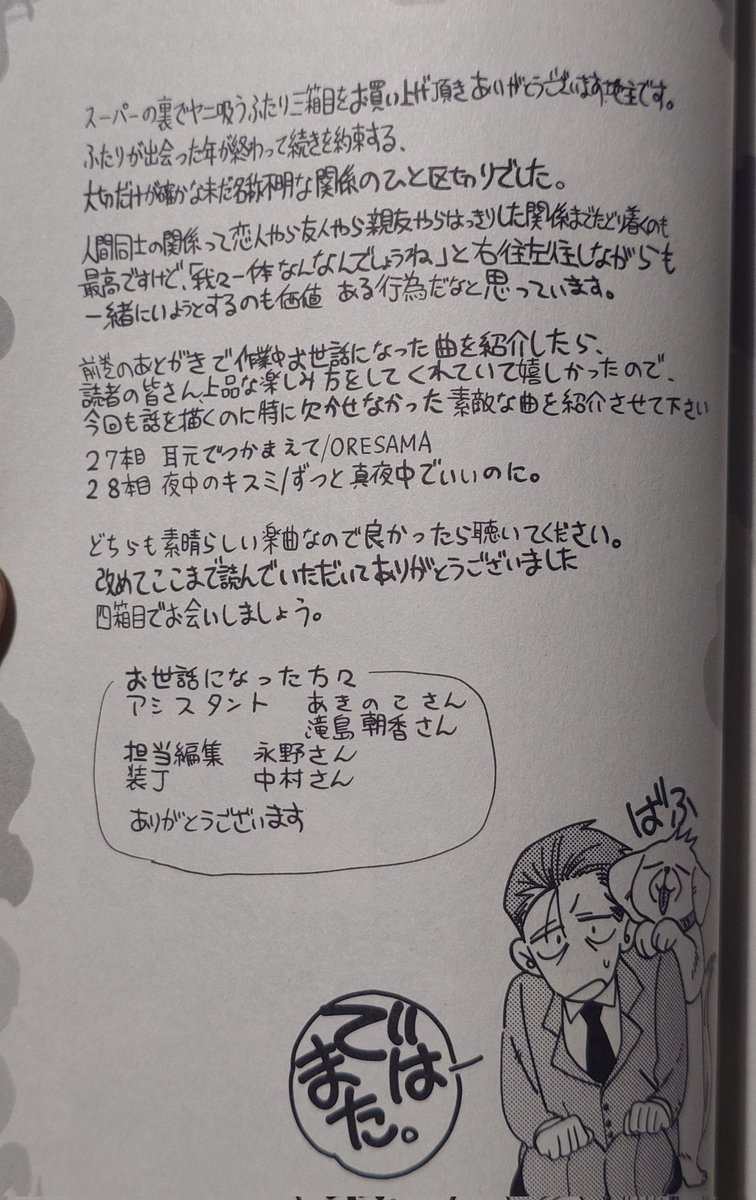 スーパーの裏でヤニ吸うふたり三箱目をお買い上げ頂きありがとうございます。地主です。
ふたりが出会った年が終わって続きを約束する、
大切だけが確かな未だ名称不明な関係のひと区切りでした。
人間同士の関係って恋人やら友人やら親友やらはっきりした関係までたどり着くのも
最高ですけど、「我々一体なんなんでしょうね」と右往左往しながらも
一緒にいようとするのも価値 ある行為だなと思っています。
前巻のあとがきで作業中お世話になった曲を紹介したら、
読者の皆さん、上品な楽しみ方をしてくれていて嬉しかったので、
今回も話を描くのに特に欠かせなかった素敵な曲を紹介させて下さい
27本目 耳元でつかまえて/ORESAMA
28本目 夜中のキスミ/ずっと真夜中でいいのに。
どちらも素晴らしい楽曲なので良かったら聴いてください。
改めてここまで読んでいただいてありがとうございました
四箱目でお会いしましょう。
お世話になった方々
アシスタント あきのこさん
滝島朝香さん
担当編集 永野さん
装丁 中村さん
ありがとうございます
ばふ
では
また。